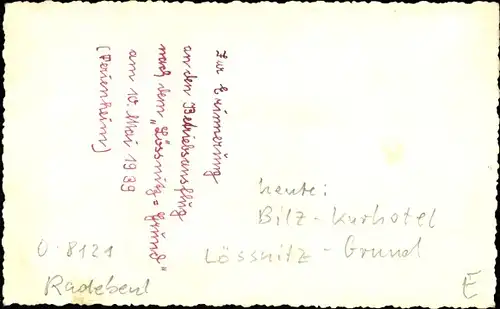 Zur Erinnerung
an den Betriebsausflug
nach dem "Lössnitz=Grund"
am 10. Mai 1939
(Ferienheim)
heute:
Bilz-Kurhotel
Lössnitz-Grund
O-8121
Radebeul
E